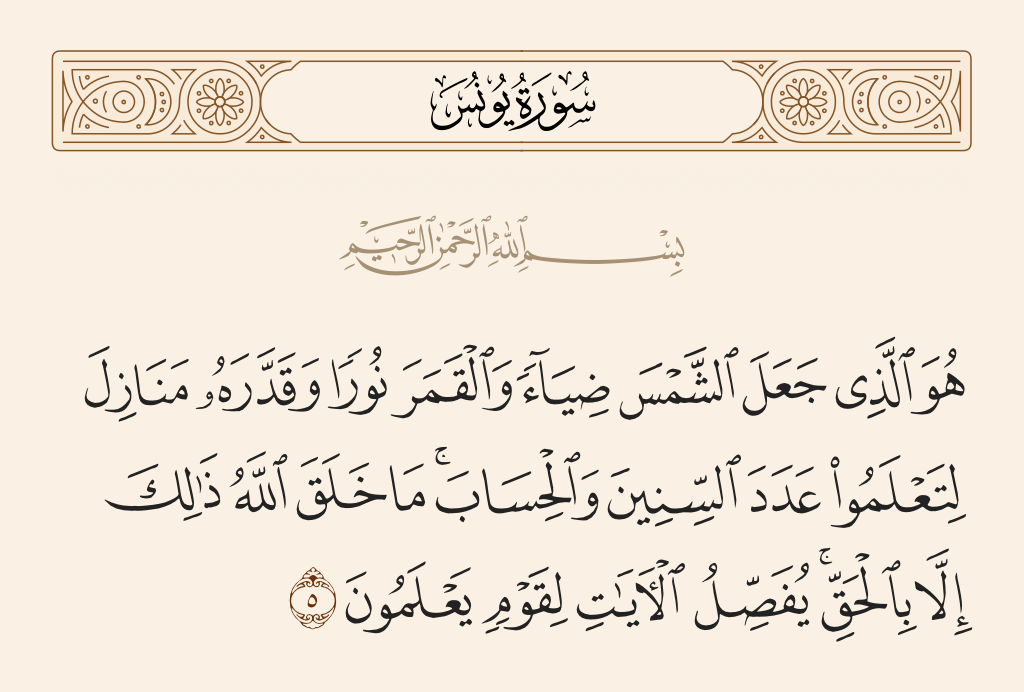 سُورَةُ يُونُسَ
بِسْمِ ٱللَّهِ ٱلرَّحْمَٰنِ ٱلرَّحِيمِ
هُوَ ٱلَّذِى جَعَلَ ٱلشَّمْسَ ضِيَآءً وَٱلْقَمَرَ نُورًا وَقَدَّرَهُۥ مَنَازِلَ
لِتَعْلَمُوا۟ عَدَدَ ٱلسِّنِينَ وَٱلْحِسَابَ ۚ مَا خَلَقَ ٱللَّهُ ذَٰلِكَ
إِلَّا بِٱلْحَقِّ ۚ يُفَصِّلُ ٱلْءَايَٰتِ لِقَوْمٍ يَعْلَمُونَ ٥